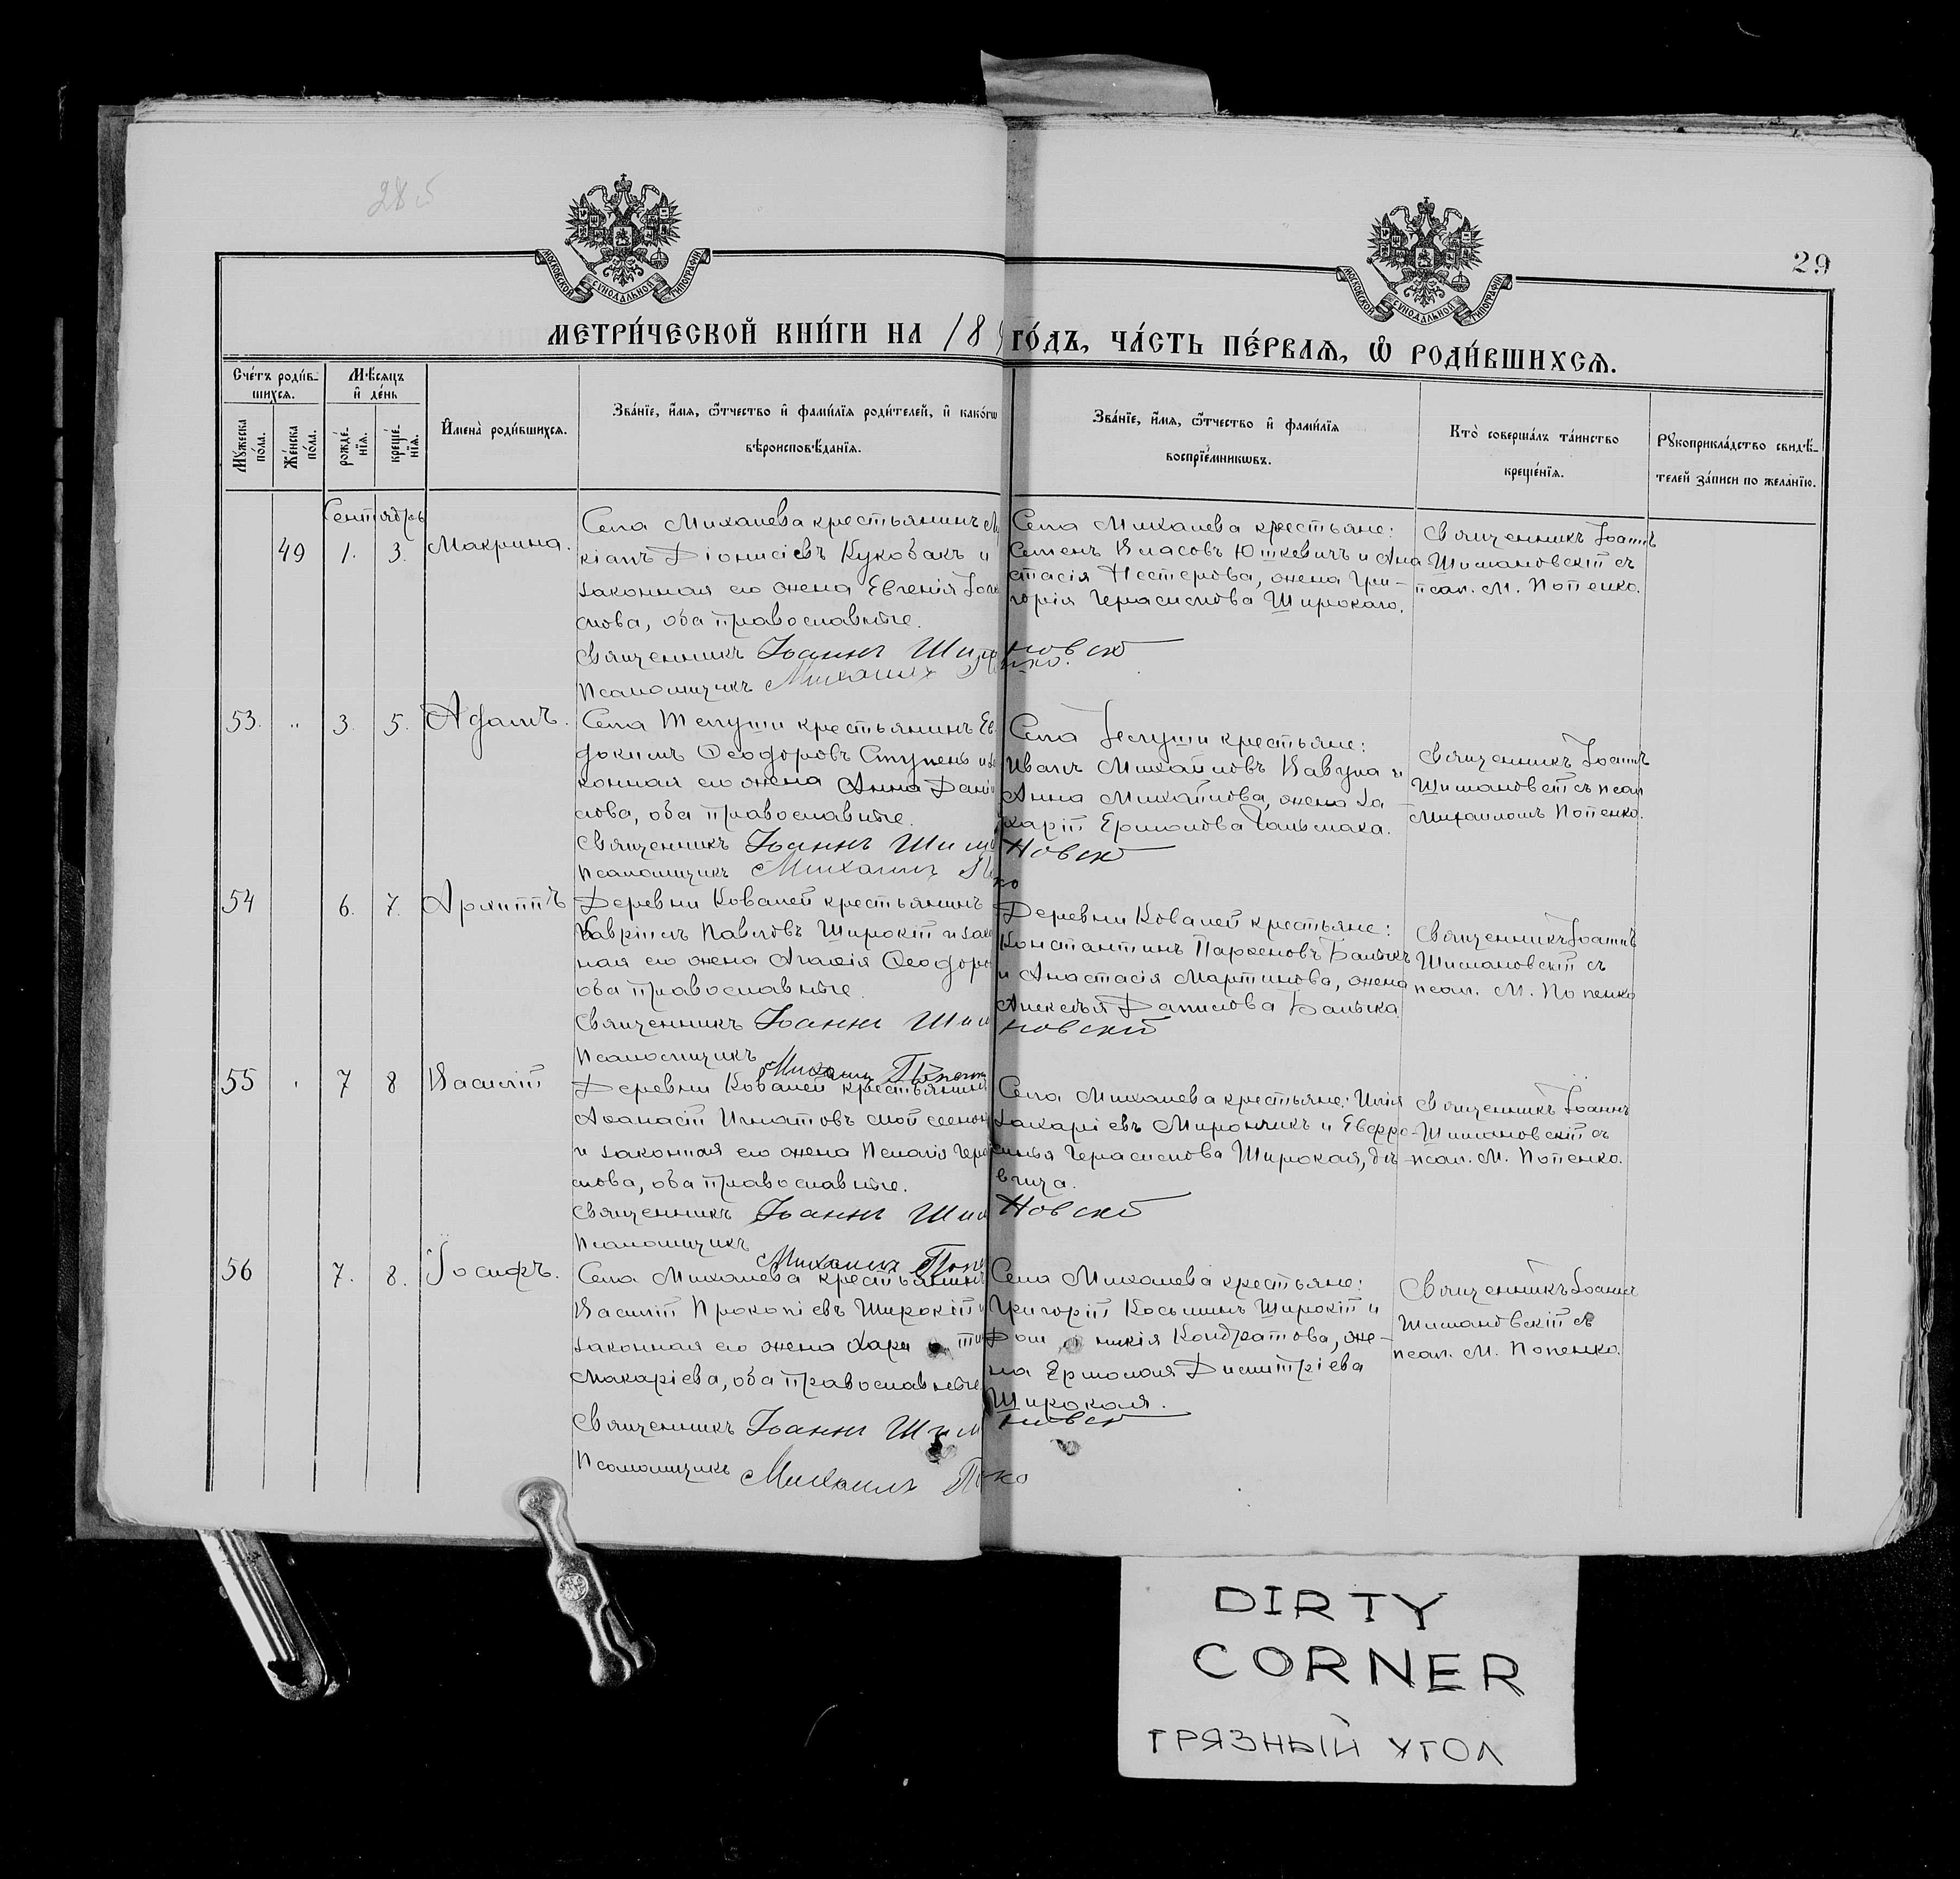 28 об
29
МОСКОВСКОЙ СѴНОДАЛЬНОЙ ТИПОГРАФІИ
МОСКОВСКОЙ СѴНОДАЛЬНОЙ ТИПОГРАФІИ
МЕТРИ́ЧЕСКОЙ КНИ́ГИ НА 18
ГО́ДЪ, ЧА́СТЬ ПЕ́РВАѦ, Ѡ҆ РОДИ́ВШИХСѦ.
Сче́тъ роди́в-
шихсѧ.
Мꙋ́жеска по́ла.
Же́нска по́ла.
Мѣ́сѧцъ
и҆ де́нь
рожде́-
нїѧ.
креще́-
нїѧ.
И҆мена̀ роди́вшихсѧ.
Зва́нїе, и҆́мѧ, ѻ҆́тчество и҆ фами́лїѧ роди́телей, и҆ како́гѡ
вѣроисповѣ́данїѧ.
Зва́нїе, и҆́мѧ, ѻ҆́тчество и҆ фами́лїѧ
воспрїе́мникѡвъ.
Кто̀ соверша́лъ та́инство
креще́нїѧ.
Рꙋкоприкла́дство свидѣ́-
телей за́писи по жела́нїю.
Сентябрь
49 1. 3. Макрина.
Села Михалева крестьянинъ
кіанъ Діонисіевъ Куковакъ и
законная его жена Евгенія
мова, оба православные.
Священникъ Іоаннъ
Псаломщикъ Михаилъ
Села Михалева крестьяне:
Семенъ Власовъ Юшкевичъ и Ана
стасія Нестерова, жена Гри-
горія Герасимова Широкаго.
Священникъ Іоаннъ
Шимановскій съ
псал. М. Попенко.
53. " 3. 5. Адамъ.
Села Телуши крестьянинъ Ев
докимъ Ѳеодоровъ Ступень и за
конная его жена Анна Дані
лова, оба православные.
Священникъ Іоаннъ
Псаломщикъ Михаилъ
Села Телуши крестьяне:
Иванъ Михайловъ Вавула и
Анна Михайлова, жена За
харія Ермолова
Священникъ Іоаннъ
Шимановскій съ псал
Михаиломъ Попенко.
54 6. 7. Архиппъ
Деревни Ковалей крестьянинъ
Гавріилъ Павловъ Широкій и зако
ная его жена Агафія Ѳеодоро
оба православные.
Священникъ Іоаннъ
Псаломщикъ Михаилъ
Деревни Ковалей крестьяне:
Константинъ Парѳеновъ
и Анастасія Мартинова, жена
Алексѣя Данилова
Священникъ Іоаннъ
Шимановскій съ
псал. М. Попенко
55 7 8 Василій
Деревни Ковалей крестьянинъ
Аѳанасій Игнатовъ
и законная его жена Пелагія Гера
мова, оба православные.
Священникъ Іоаннъ
Псаломщикъ Михаилъ
Села Михалева крестьяне: Илія
Захаріевъ Мирончикъ и Евфро-
синья Герасимова Широкая, дѣ
вица.
Священникъ Іоаннъ
Шимановскій съ
псал. М. Попенко.
56 7. 8. Іосифъ.
Села Михалева крестьянинъ
Василій Прокопіевъ Широкій и
законная его жена
Макаріева, оба православные
Священникъ Іоаннъ
Псаломщикъ Михаилъ
Села Михалева крестьяне:
Григорій Косьминъ Широкій и
Дом никія Кондратова, же-
на Ермолая Димитріева
Священникъ Іоаннъ
Шимановскій съ
псал. М. Попенко.
DIRTY
CORNER
ГРЯЗНЫЙ УГОЛ